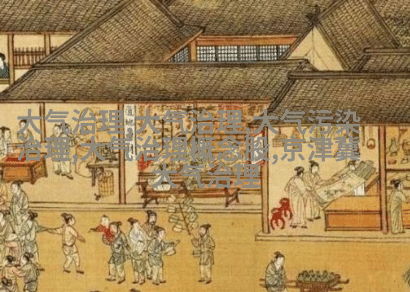 大气治理,大气治理,大气污染
治理,大气治理概念股,京津冀
大气治理